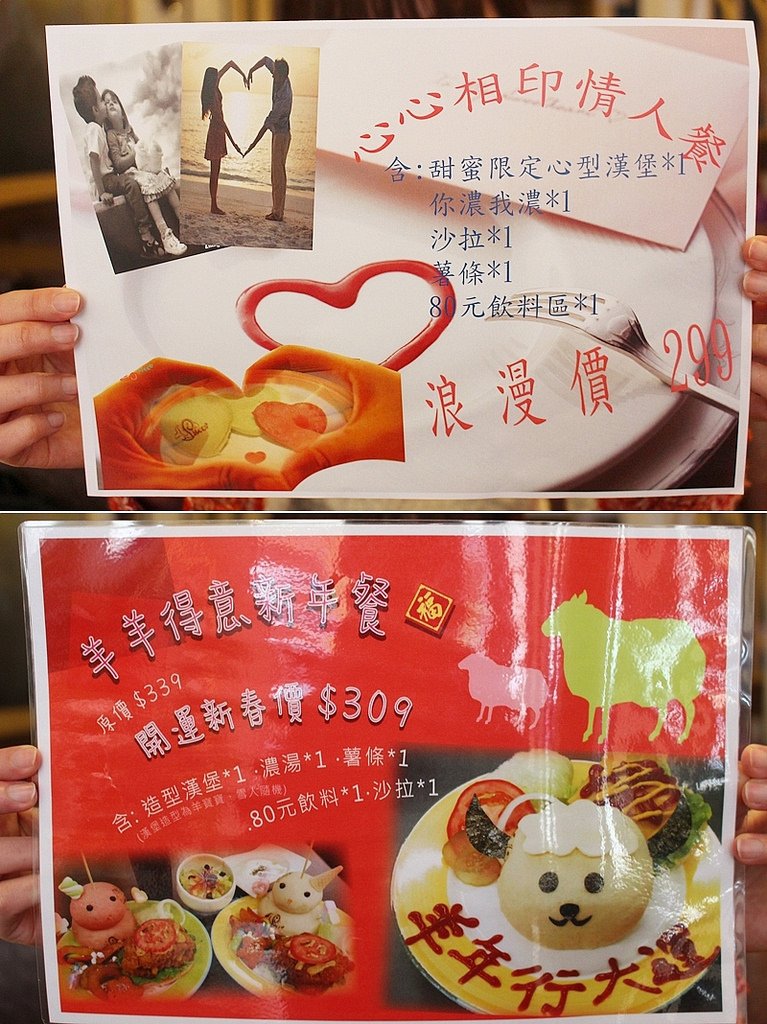 心心相印情人餐
含:甜蜜限定心型漢堡*1
你濃我濃*1
沙拉*1
薯條*1
80元飲料區*1
浪漫價 299
羊羊得意新年餐
福
原價$339
開運新春價$309
含:造型漢堡*1.濃湯*1.薯條*1
(漢堡造型為羊寶寶、雪人隨機)
.80元飲料*1.沙拉*1
羊年行大運